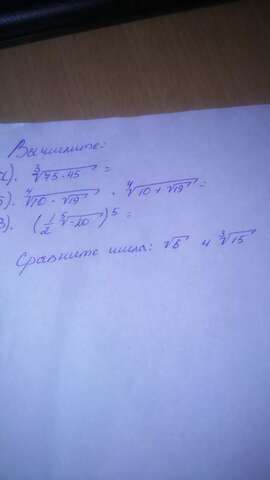 Вычислите:
а). ∛75·45 =
б). ∜10 - √19 · ∜10 + √19 =
в). (1/2 ⁵√-20)⁵ =
Сравните числа: √6 и ∛15